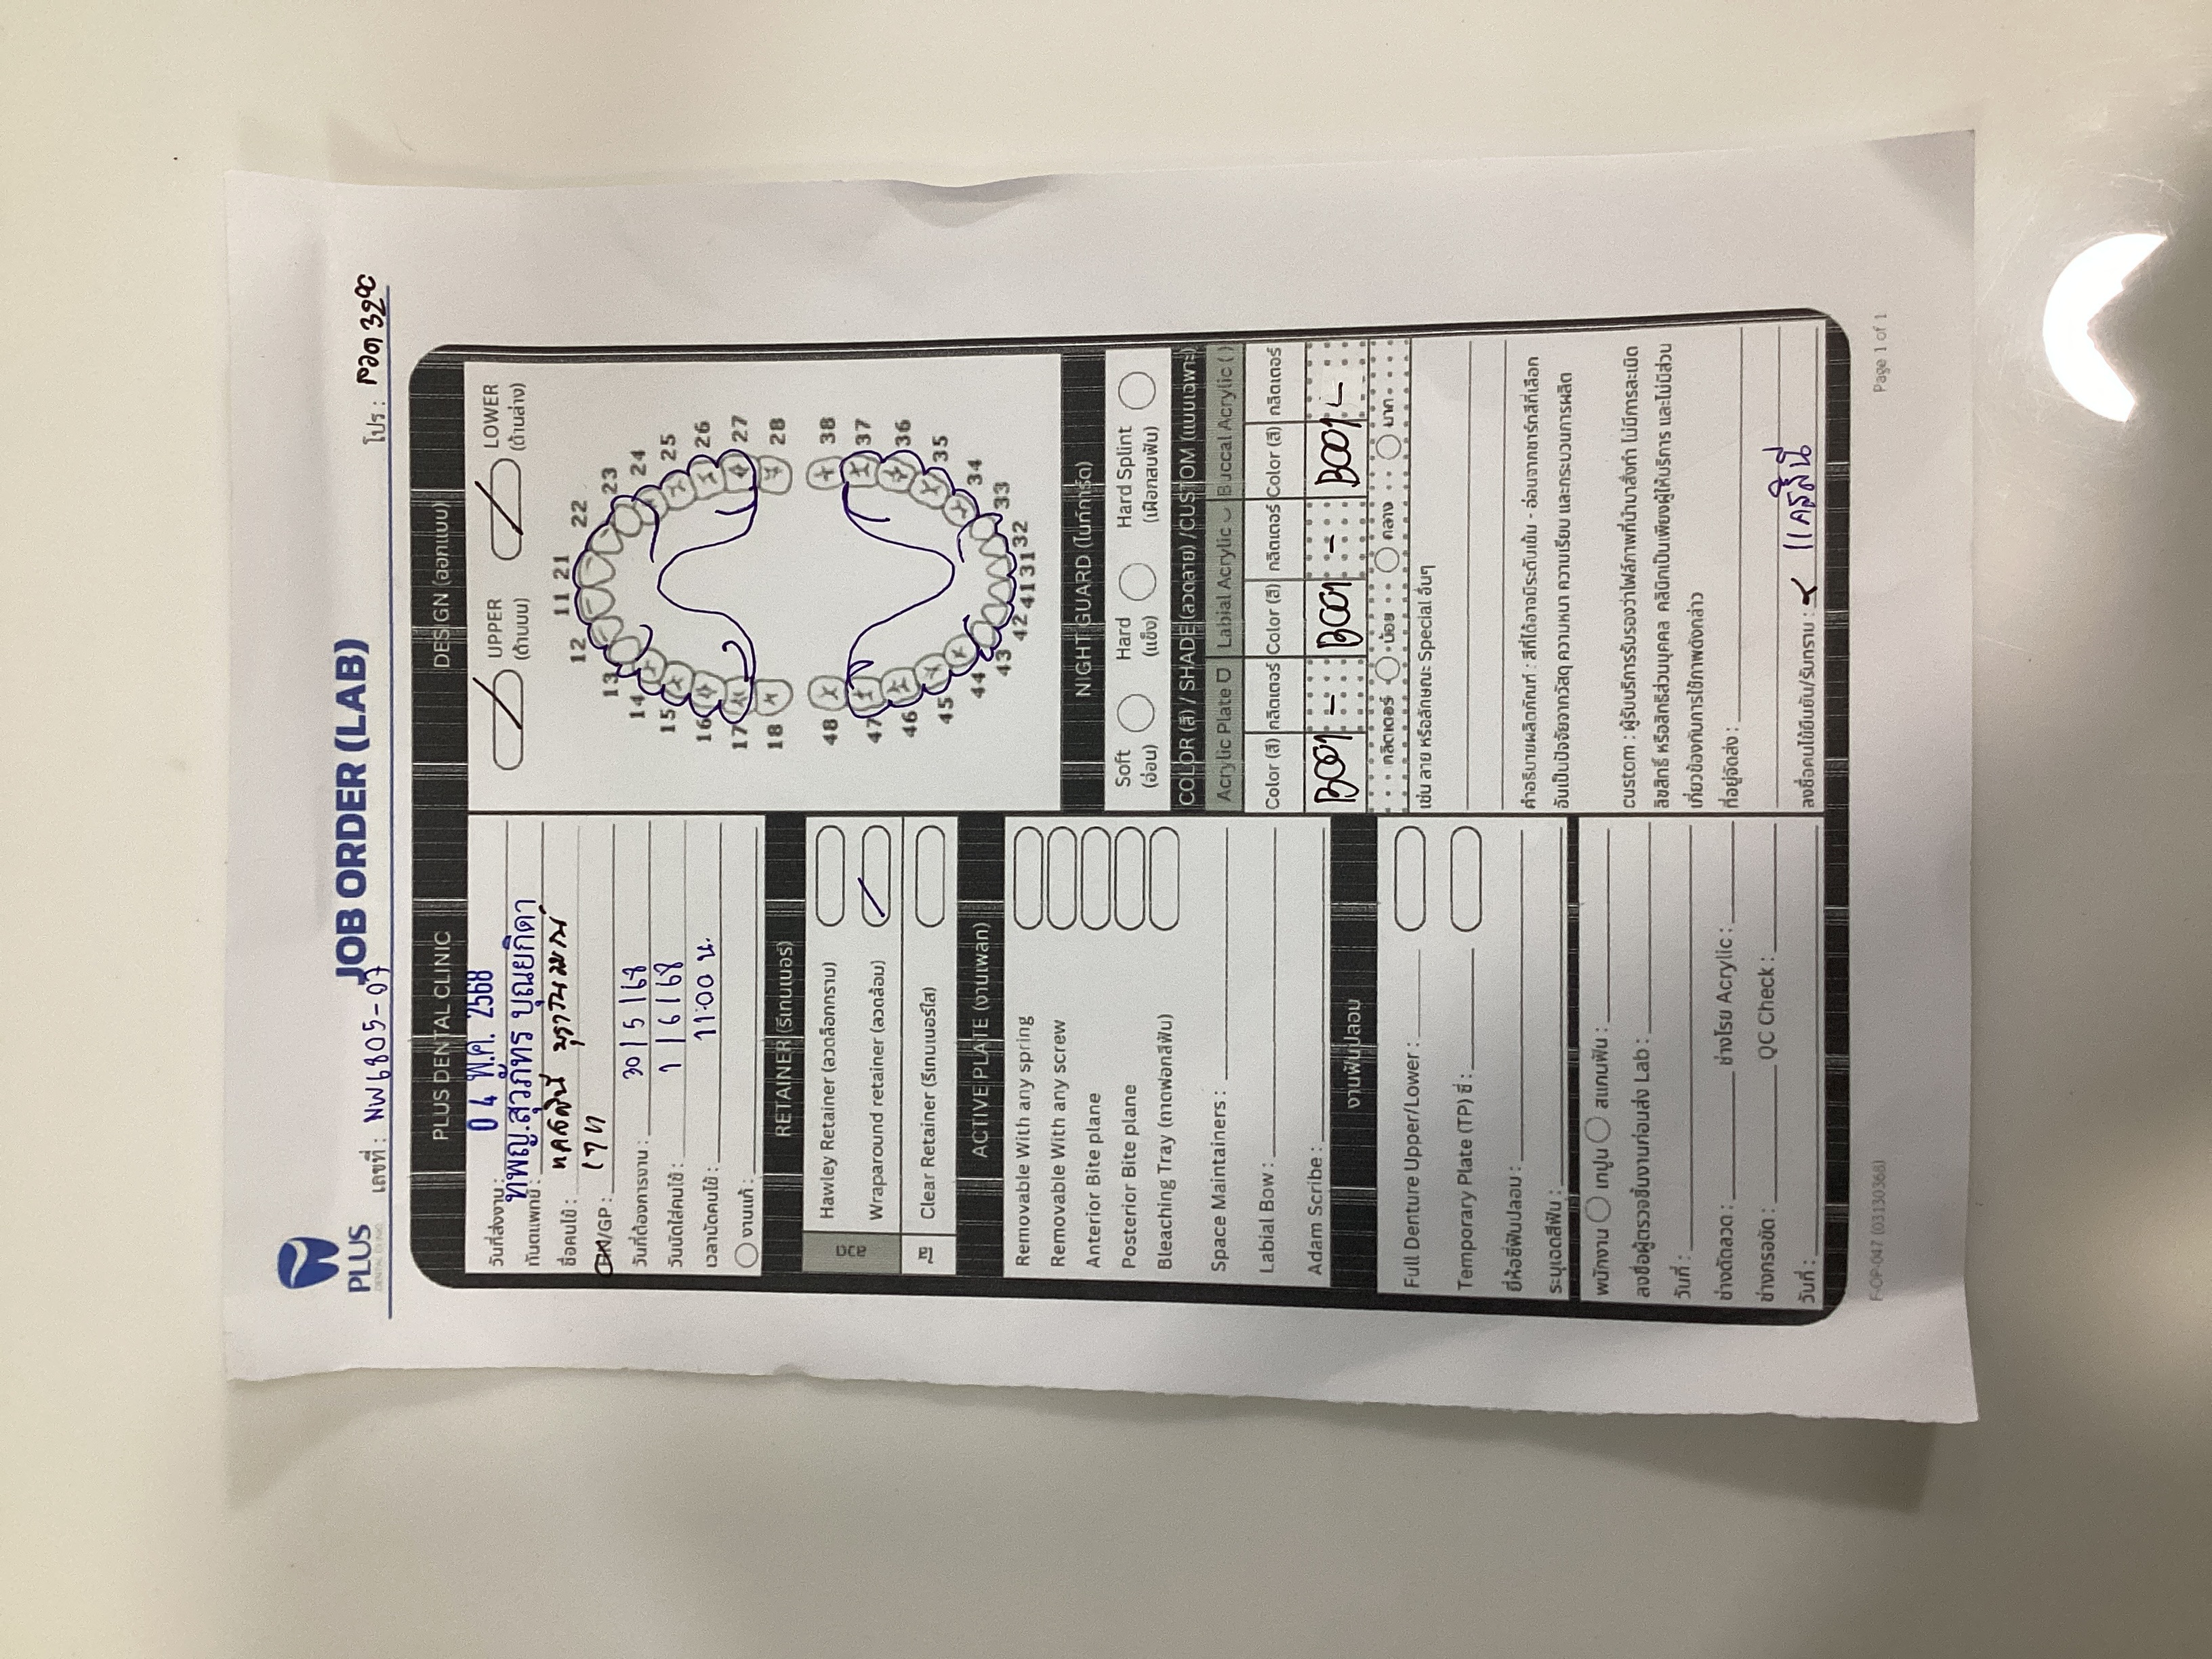 PLUS
DENTAL CLINIC
JOB ORDER (LAB)
เลขที่ : NW6805-07
โปร : ลวด 3200
PLUS DENTAL CLINIC
วันที่ส่งงาน : 04 พ.ค. 2568
ทันตแพทย์ : ทพญ.สุวภัทร บุณยกิดา
ชื่อคนไข้ : แคสสินี
HN/GP :
วันที่ต้องการงาน : 30/5/68
วันนัดใส่คนไข้ : 1/6/68
เวลานัดคนไข้ : 11:00 น.
งานแก้ :
RETAINER (รีเทนเนอร์)
ลวด
Hawley Retainer (ลวดล็อกกราม)
Wraparound retainer (ลวดล้อม)
ใส
Clear Retainer (รีเทนเนอร์ใส)
ACTIVE PLATE (งานเพลท)
Removable With any spring
Removable With any screw
Anterior Bite plane
Posterior Bite plane
Bleaching Tray (ถาดฟอกสีฟัน)
Space Maintainers :
Labial Bow :
Adam Scribe :
งานฟันปลอม
Full Denture Upper/Lower :
Temporary Plate (TP) ซี่ :
ยี่ห้อซี่ฟันปลอม :
ระบุเฉดสีฟัน :
พนักงาน เทปูน สแกนฟัน :
ลงชื่อผู้ตรวจชิ้นงานก่อนส่ง Lab :
วันที่ :
ช่างดัดลวด : ช่างโรย Acrylic :
ช่างกรอขัด : QC Check :
วันที่ :
DESIGN (ออกแบบ)
UPPER (ด้านบน)
LOWER (ด้านล่าง)
11 21
12 22
13 23
14 24
15 25
16 26
17 27
18 28
48 38
47 37
46 36
45 35
44 34
43 33
42 41 31 32
NIGHT GUARD (ไนท์การ์ด)
Soft (อ่อน)
Hard (แข็ง)
Hard Splint (เฝือกสบฟัน)
COLOR (สี) / SHADE (ลวดลาย) /CUSTOM (แบบเฉพาะ)
Acrylic Plate Labial Acrylic Buccal Acrylic ( )
Color (สี) กลิตเตอร์ Color (สี) กลิตเตอร์ Color (สี) กลิตเตอร์
B001 - B001 - B001 -
กลิตเตอร์ น้อย กลาง มาก
เช่น ลาย หรือลักษณะ Special อื่นๆ
คำอธิบายผลิตภัณฑ์ : สีที่ได้อาจมีระดับเข้ม - อ่อนจากชาร์ทสีที่เลือก
อันเป็นปัจจัยจากวัสดุ ความหนา ความเรียบ และกระบวนการผลิต
custom : ผู้รับบริการรับรองว่าไฟล์ภาพที่นำมาสั่งทำ ไม่มีการละเมิด
ลิขสิทธิ์ หรือสิทธิส่วนบุคคล คลินิกเป็นเพียงผู้ให้บริการ และไม่มีส่วน
เกี่ยวข้องกับการใช้ภาพดังกล่าว
ที่อยู่จัดส่ง :
ลงชื่อคนไข้ยืนยัน/รับทราบ : แคสสินี
F-OP-047 (03130368)
Page 1 of 1